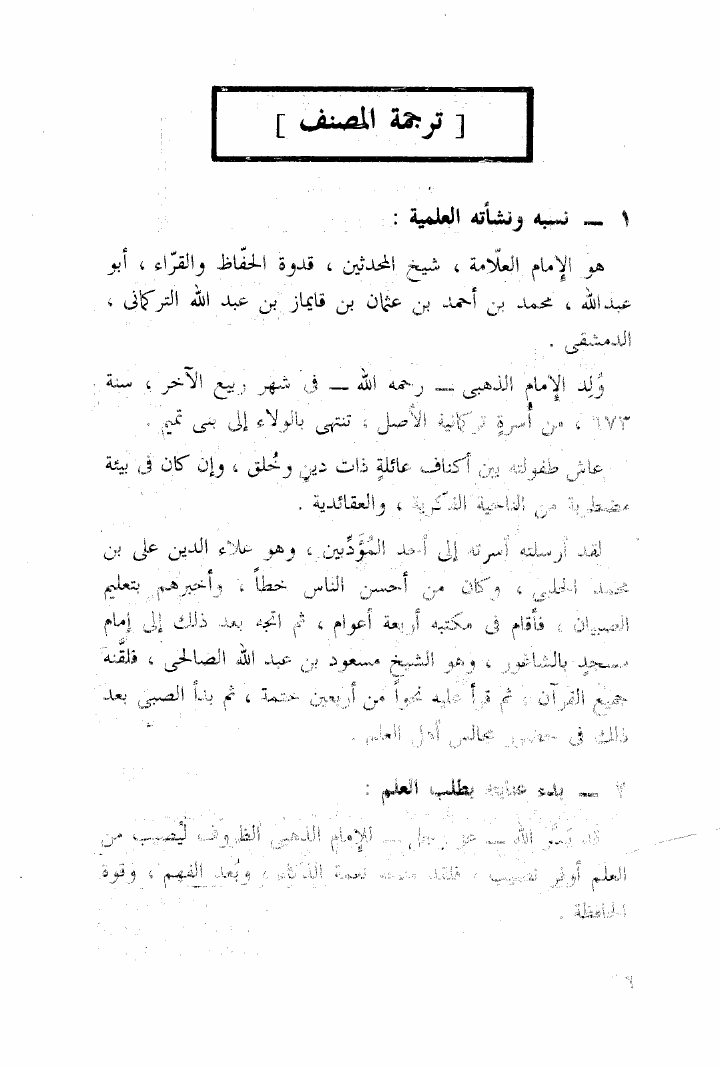 [ ترجمة المصنف ]
١ ــ نسبه ونشأته العلمية :
هو الإمام العلّامة ، شيخ المحدثين ، قدوة الحفّاظ والقرّاء ، أبو
عبدالله ، محمد بن أحمد بن عثمان بن قايماز بن عبد الله التركمانى ،
الدمشقى .
وُلِد الإمام الذهبى ــ رحمه الله ــ فى شهر ربيع الآخر ، سنة
٦٧٣ ، من أُسرةٍ تركمانية الأصل ، تنتهى بالولاء إلى بنى تميم .
عاش طفولته بين أكناف عائلةٍ ذات دينٍ وخُلق ، وإن كان فى بيئة
مضطربة من الناحية الفكرية ، والعقائدية .
لقد أرسلته أسرته إلى أحد المُؤَدِّبين ، وهو علاء الدين على بن
محمد الحلبى ، وكان من أحسن الناس خطاً ، وأخبرهم بتعليم
الصبيان ، فأقام فى مكتبه أربعة أعوام ، ثم اتجه بعد ذلك إلى إمام
مسجدٍ بالشاغور ، وهو الشيخ مسعود بن عبد الله الصالحى ، فلقَّنه
جميع القرآن ، ثم قرأ عليه نحواً من أربعين ختمة ، ثم بدأ الصبى بعد
ذلك فى حضور مجالس أهل العلم .
٢ ــ بدء عنايته بطلب العلم :
قد يَسَّر الله ــ عز وجل ــ للإمام الذهبى الظروف ليُصيب من
العلم أوفر نصيب ، فلقد منحه نعمة الذكاء ، وبُعد الفهم ، وقوة
الحافظة .